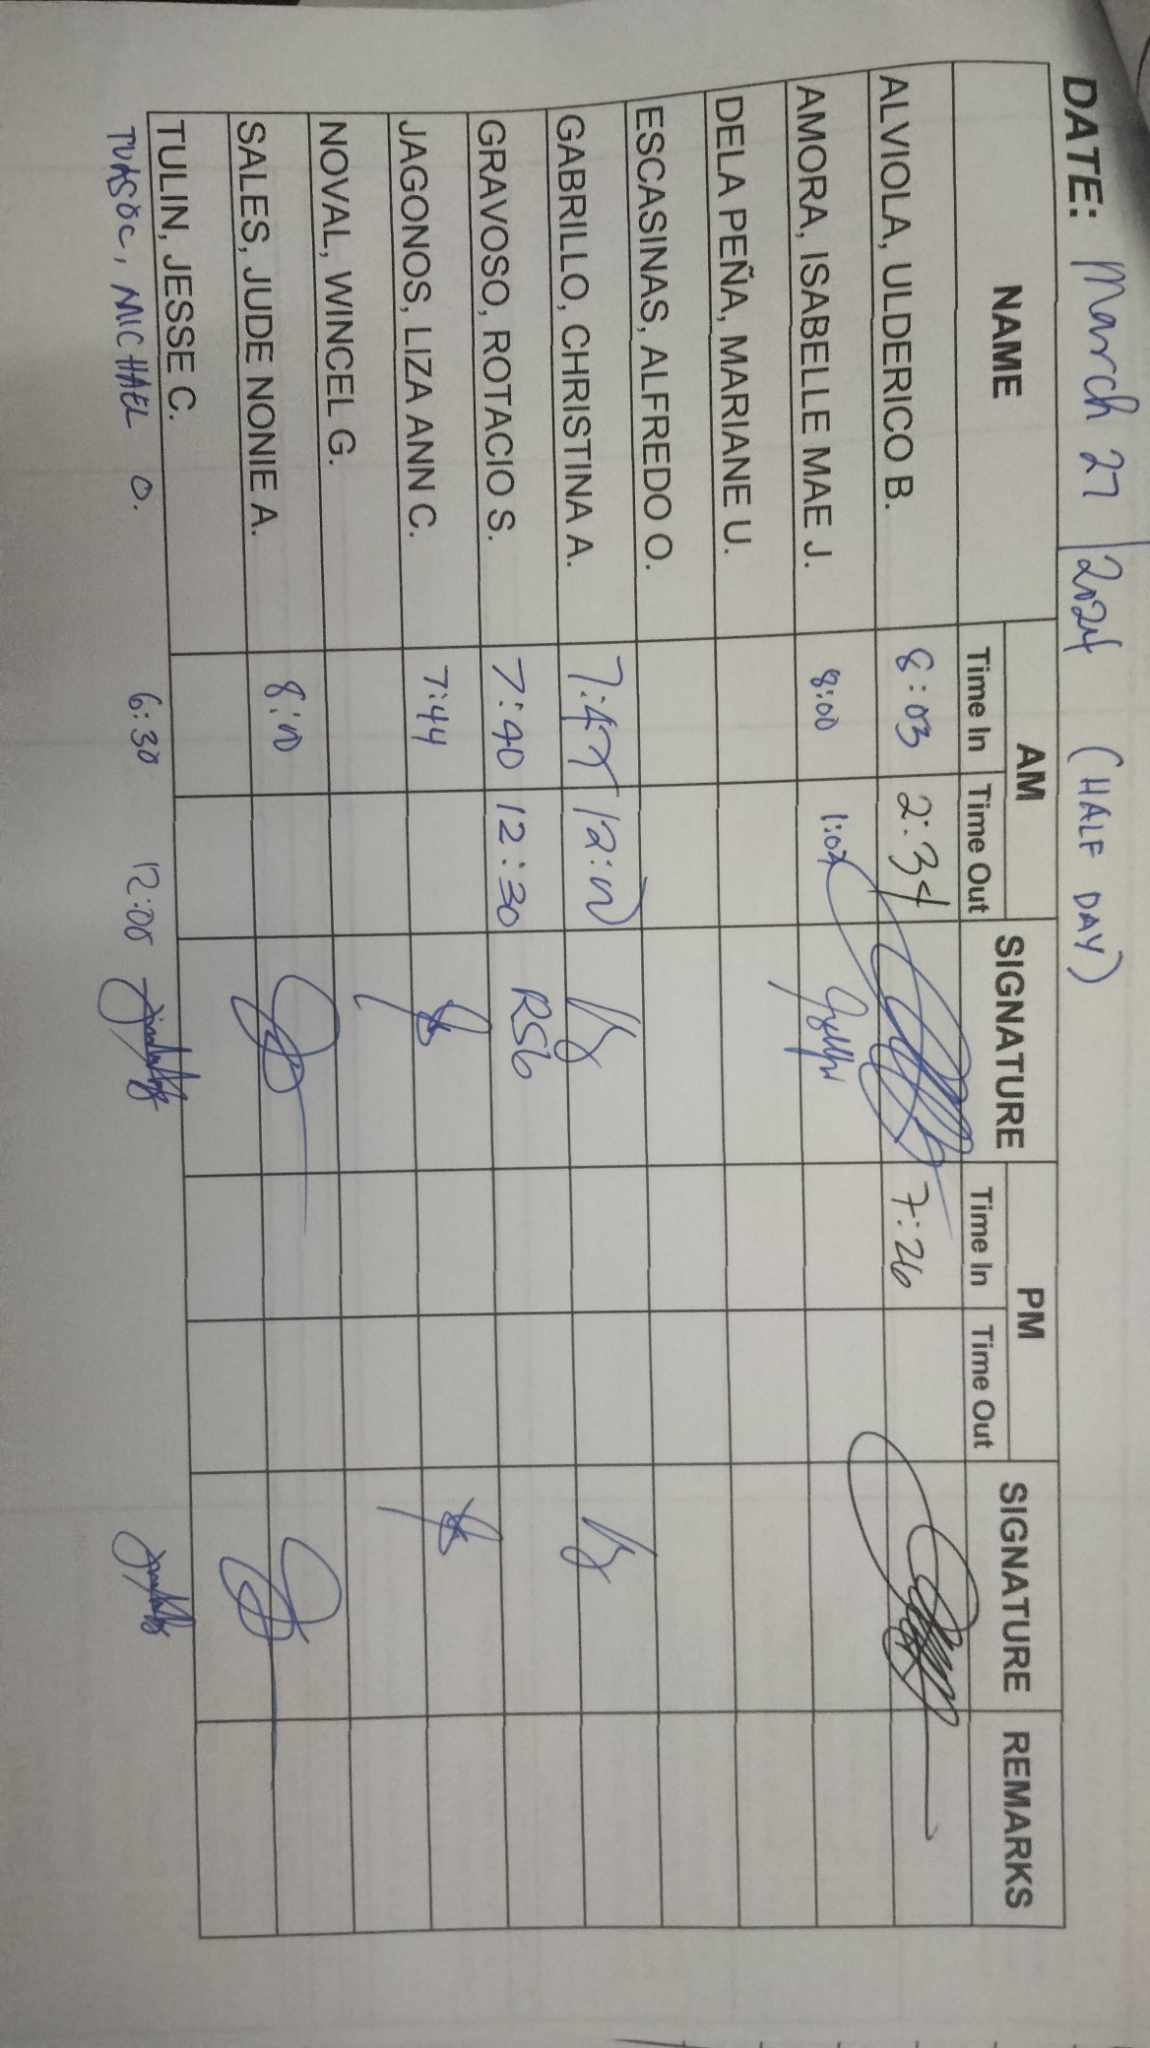 DATE: March 27 / 2024 (HALF DAY)
NAME AM SIGNATURE PM SIGNATURE REMARKS
Time In Time Out Time In Time Out
ALVIOLA, ULDERICO B. 8:03 2:34 7:26
AMORA, ISABELLE MAE J. 8:00
DELA PEÑA, MARIANE U.
ESCASINAS, ALFREDO O.
GABRILLO, CHRISTINA A. 7:47 12:00
GRAVOSO, ROTACIO S. 7:40 12:30 RSG
JAGONOS, LIZA ANN C. 7:44
NOVAL, WINCEL G.
SALES, JUDE NONIE A. 8:00
TULIN, JESSE C.
TUASOC, MICHAEL O. 6:30 12:00